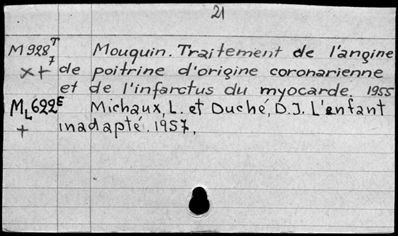 21
M928T Mouquin. Traitement de l'angine
x+7 de poitrine d'origine coronarienne
et de l'infarctus du myocarde. 1955
ML622E Michaux, L. et Duché, D.J. L'enfant
+ inadapté. 1957.